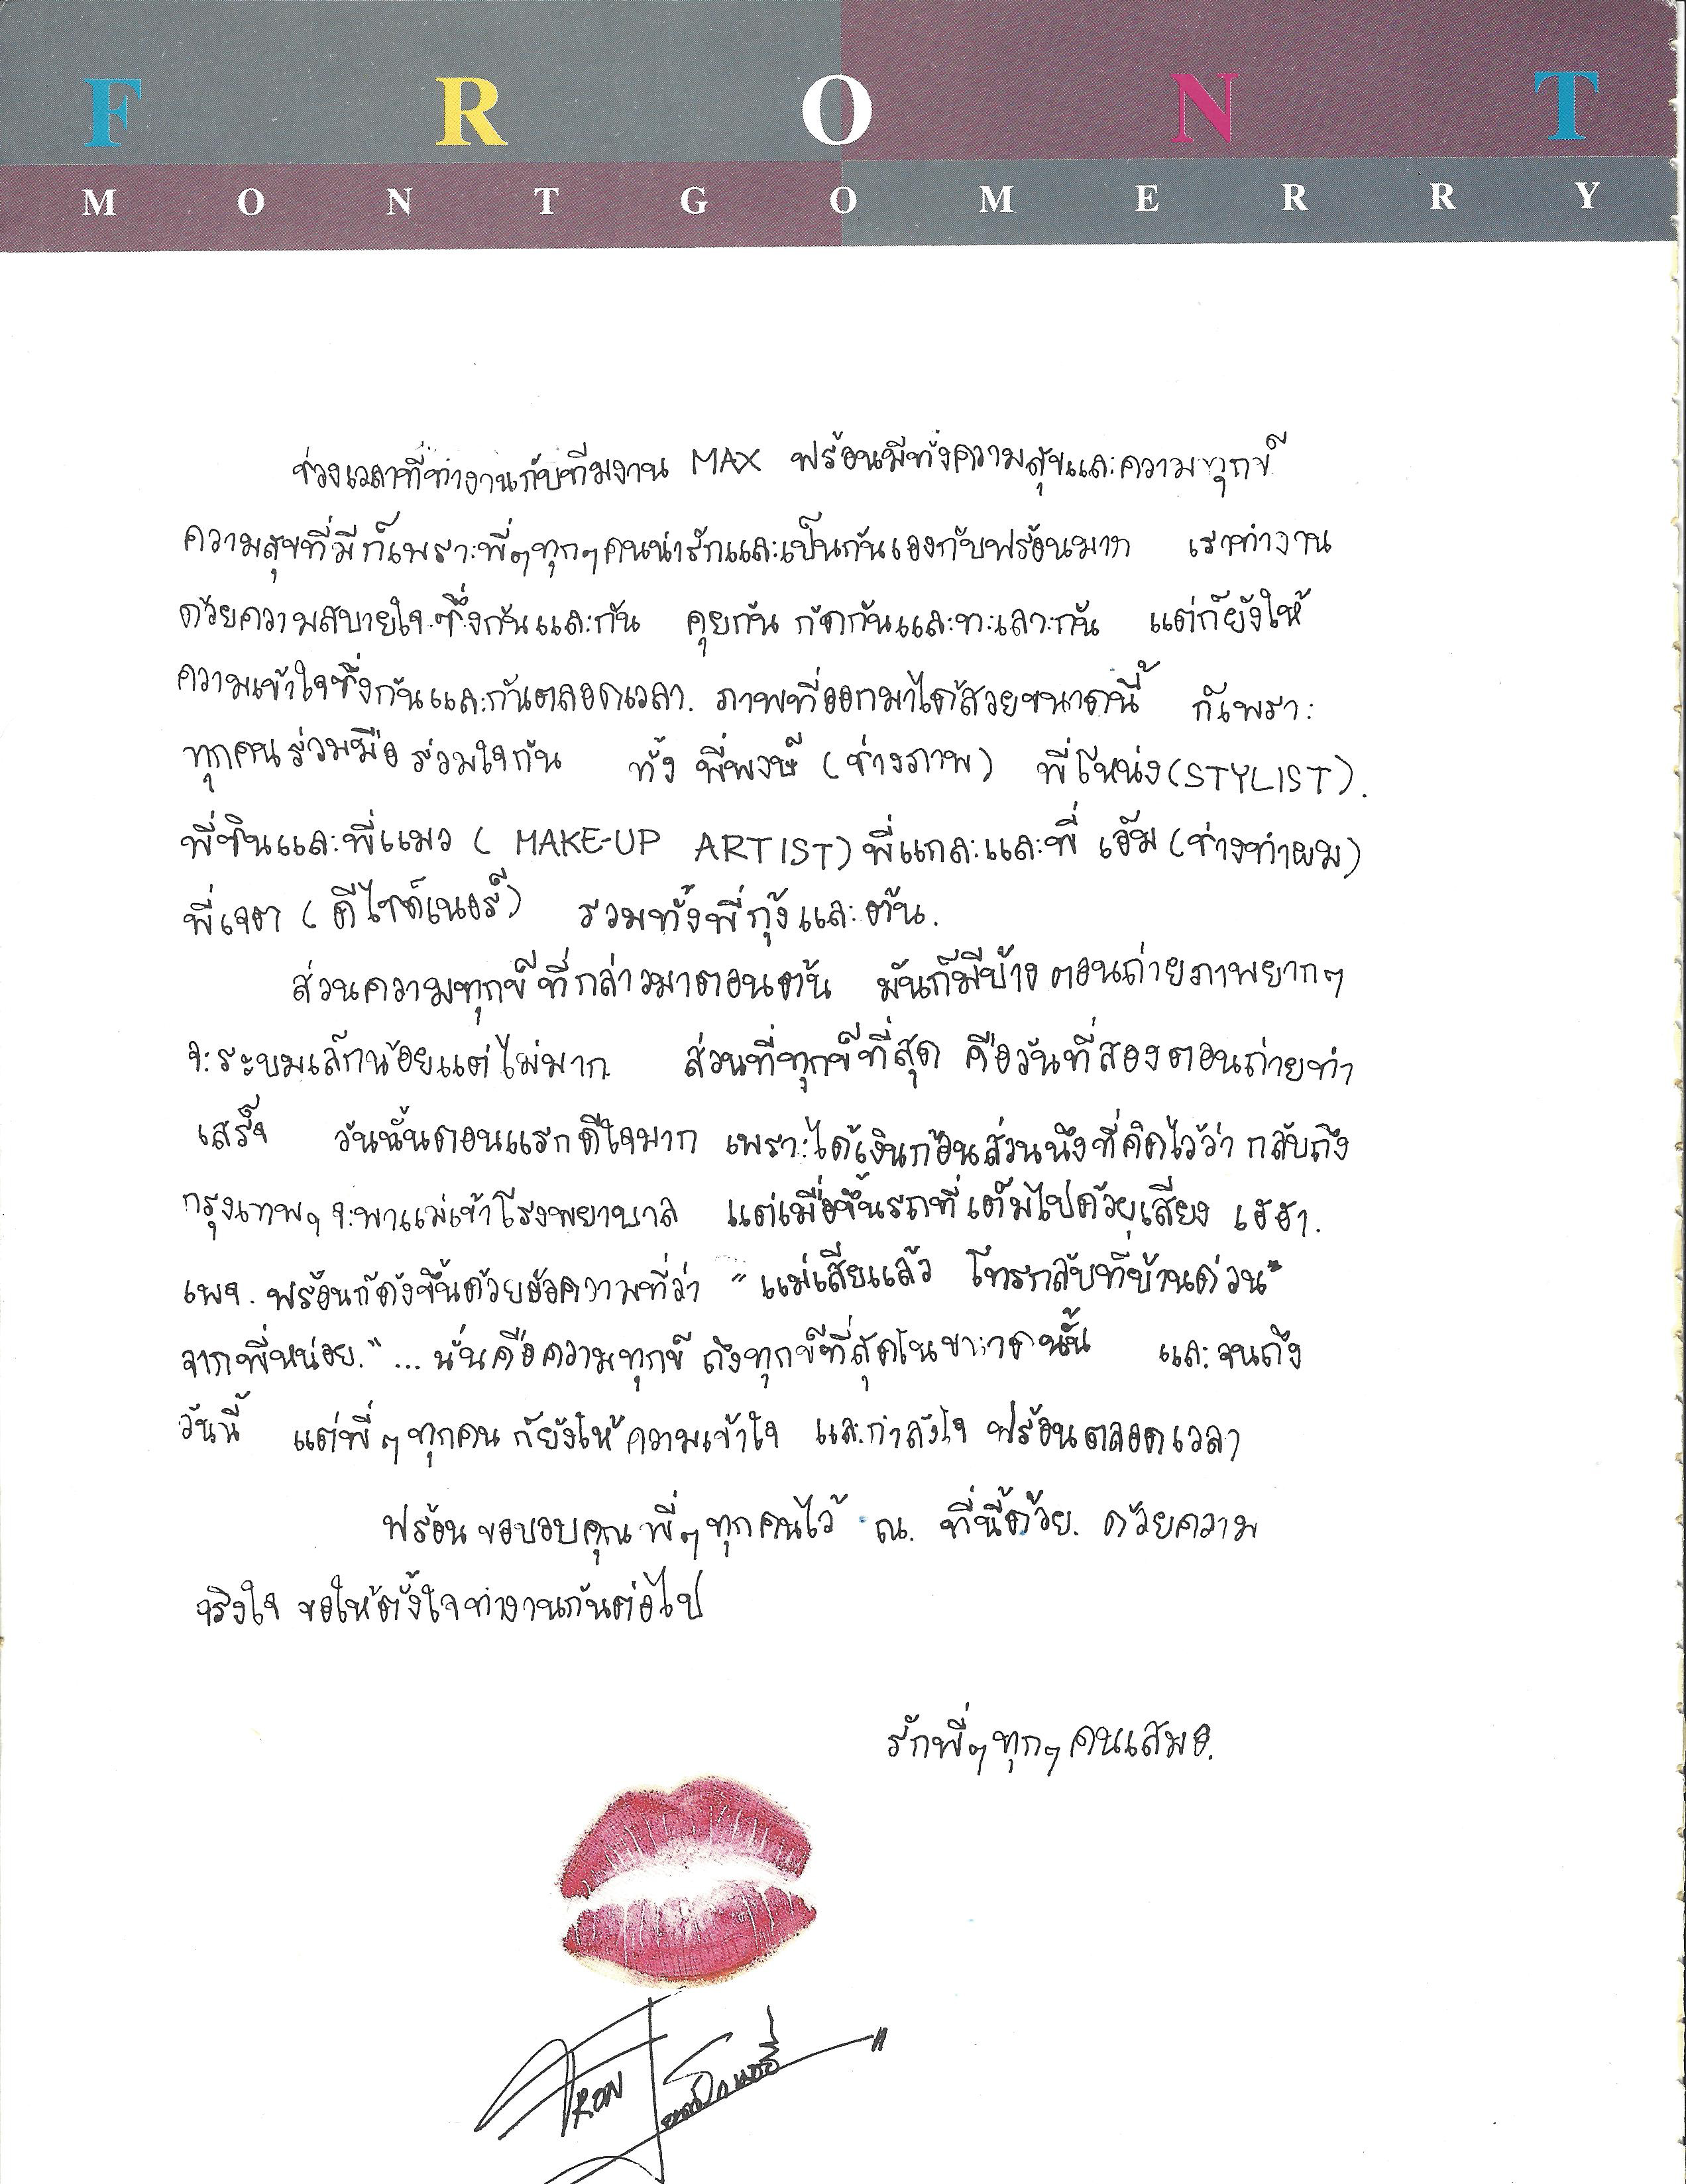 FRONT
MONTGOMERRY
ช่วงเวลาที่ทำงานกับทีมงาน MAX ฟร้อนมีทั้งความสุขและความทุกข์
ความสุขที่มีก็เพราะพี่ๆทุกๆคนน่ารักและเป็นกันเองกับฟร้อนมาก เราทำงาน
ด้วยความสบายใจซึ่งกันและกัน คุยกัน กัดกันและทะเลาะกัน แต่ก็ยังให้
ความเข้าใจซึ่งกันและกันตลอดเวลา. ภาพที่ออกมาได้สวยขนาดนี้ ก็เพราะ
ทุกคนร่วมมือร่วมใจกัน ทั้ง พี่พงษ์ (ช่างภาพ) พี่โหน่ง (STYLIST).
พี่ชินและพี่แมว (MAKE-UP ARTIST) พี่แกละและพี่ เอ้ม (ช่างทำผม)
พี่เจต (ดีไซด์เนอร์) รวมทั้งพี่กุ้งและต้น.
ส่วนความทุกข์ที่กล่าวมาตอนต้น มันก็มีบ้าง ตอนถ่ายภาพยากๆ
จะระบมเล็กน้อยแต่ไม่มาก ส่วนที่ทุกข์ที่สุด คือวันที่สองตอนถ่ายทำ
เสร็จ วันนั้นตอนแรกดีใจมาก เพราะได้เงินก้อนส่วนนึงที่คิดไว้ว่า กลับถึง
กรุงเทพๆ จะพาแม่เข้าโรงพยาบาล แต่เมื่อขึ้นรถที่เต็มไปด้วยเสียง เฮฮา.
เพจ. ฟร้อนก็ดังขึ้นด้วยข้อความที่ว่า "แม่เสียแล้ว โทรกลับที่บ้านด่วน"
จากพี่หน่อย." ... นั่นคือความทุกข์ ถึงทุกข์ที่สุดในขณะนั้น และจนถึง
วันนี้ แต่พี่ๆทุกคน ก็ยังให้ความเข้าใจ และกำลังใจ ฟร้อนตลอดเวลา
ฟร้อน ขอบอบคุณ พี่ๆทุกคนไว้ ณ. ที่นี้ด้วย. ด้วยความ
จริงใจ ขอให้ตั้งใจทำงานกันต่อไป
รักพี่ๆทุกๆคนเสมอ.